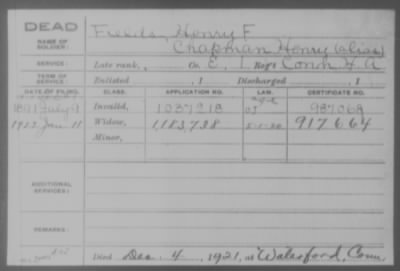 DEAD
NAME OF SOLDIER: Fields, Henry F.
Chapman Henry (alias)
SERVICE: Late rank, Co. E, 1 Reg't Conn H A
TERM OF SERVICE: Enlisted , 1 Discharged , 1
DATE OF FILING. CLASS. APPLICATION NO. LAW. CERTIFICATE NO.
1891 July 9 Invalid, 1037218 987068
1922 Jan 11 Widow, 1,183,738 917664
Minor,
ADDITIONAL SERVICES:
REMARKS:
Died Dec. 4, 1921, at Waterford, Conn.